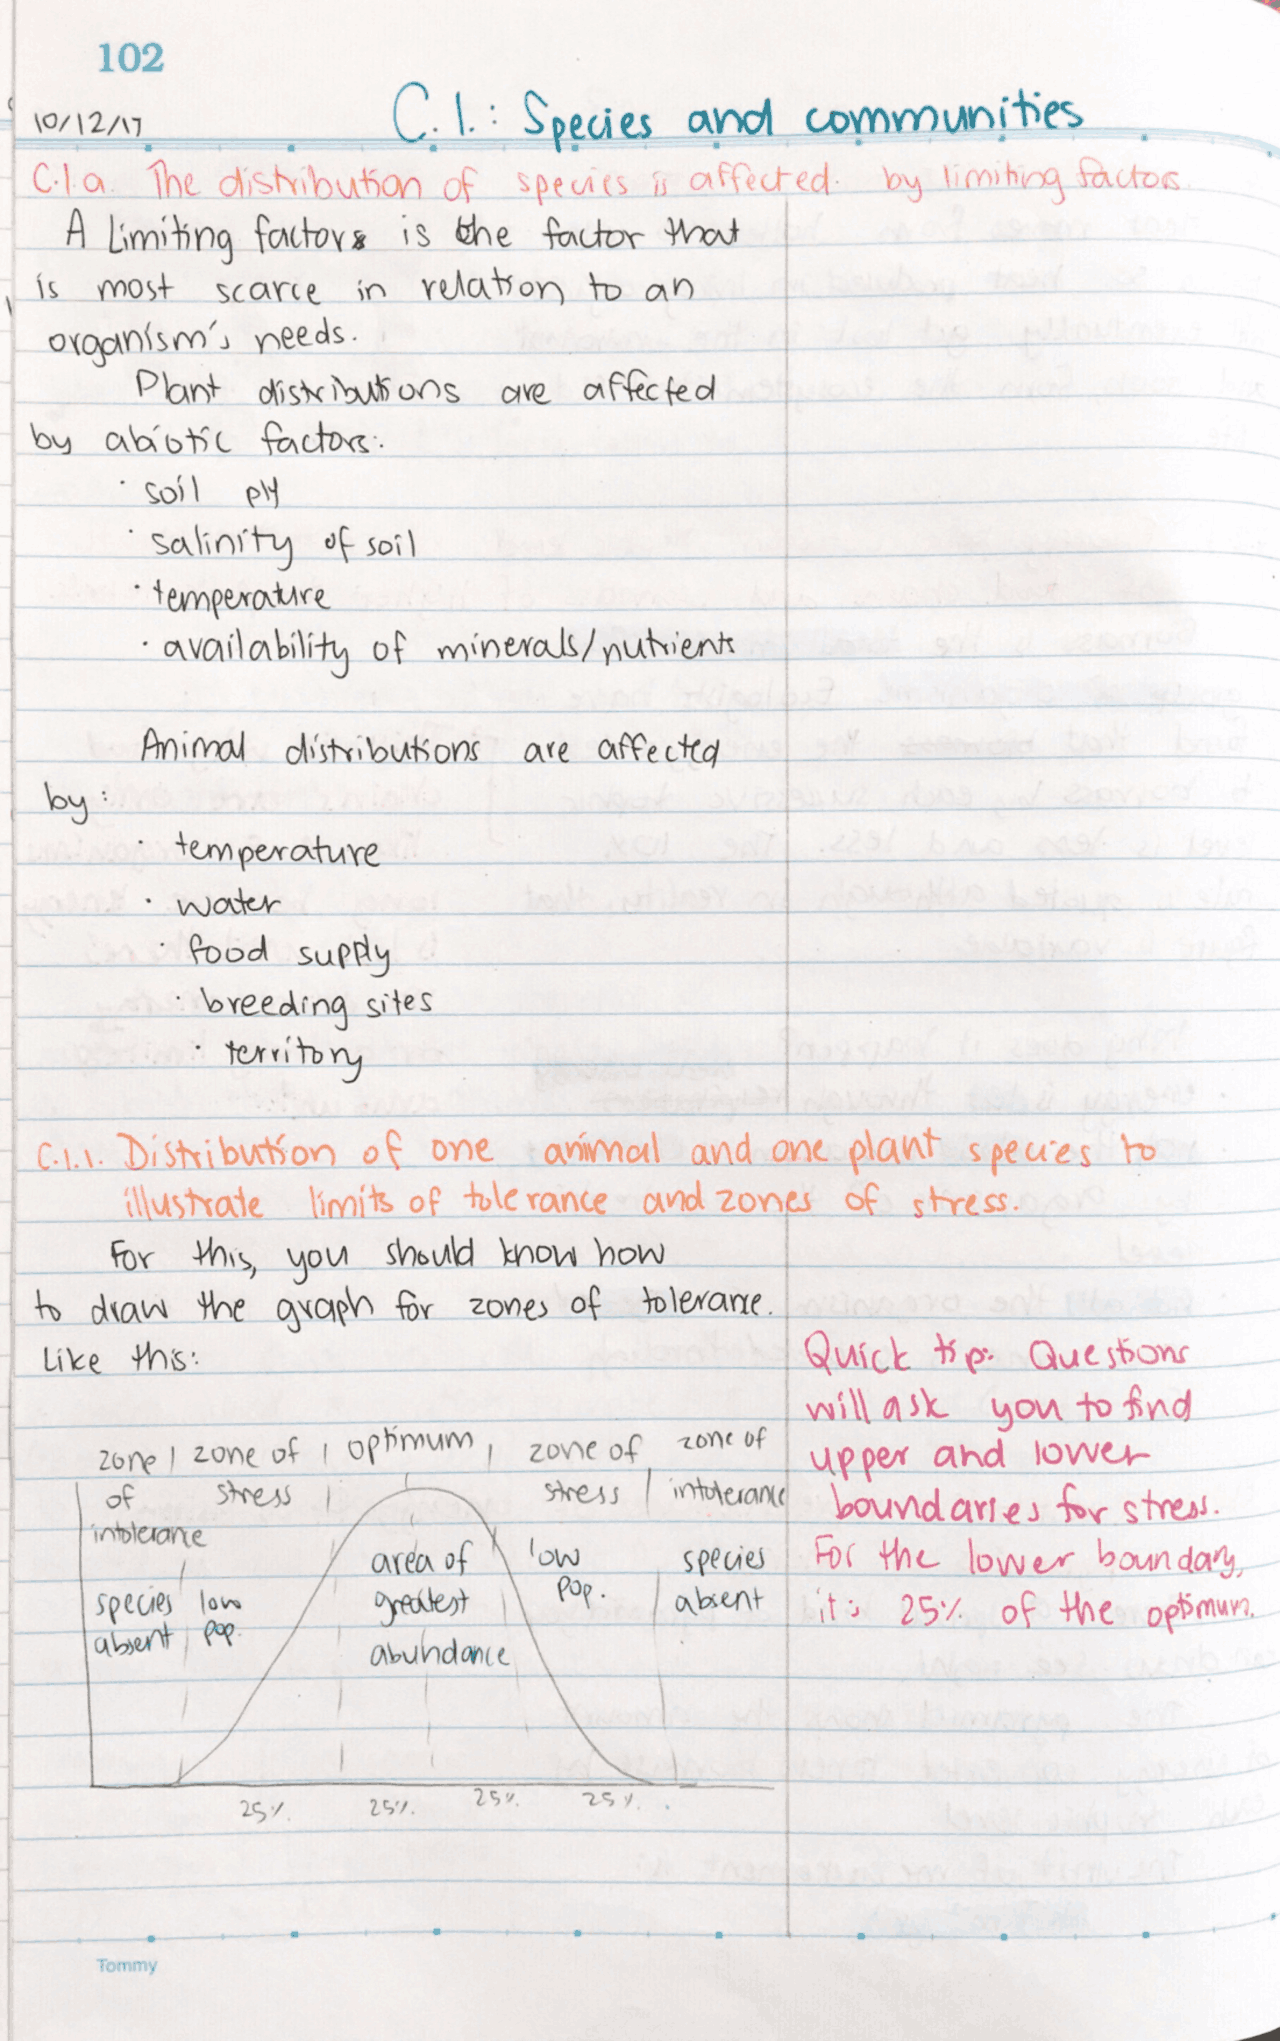 102
10/12/17
C.1.: Species and communities
C.1.a. The distribution of species is affected. by limiting factors.
A Limiting factors is the factor that
is most scarce in relation to an
organism's needs.
Plant distributions are affected
by abiotic factors:
· soil pH
· salinity of soil
· temperature
· availability of minerals/nutrients
Animal distributions are affected
by:
· temperature
· water
· food supply
· breeding sites
· territory
C.1.1. Distribution of one animal and one plant species to
illustrate limits of tolerance and zones of stress.
For this, you should know how
to draw the graph for zones of tolerance.
Like this:
Quick tip: Questions
will ask you to find
upper and lower
boundaries for stress.
For the lower boundary,
it's 25% of the optimum.
zone of intolerance
zone of stress
optimum
zone of stress
zone of intolerance
species absent
low pop.
area of greatest abundance
low pop.
species absent
25% 25% 25% 25%
Tommy